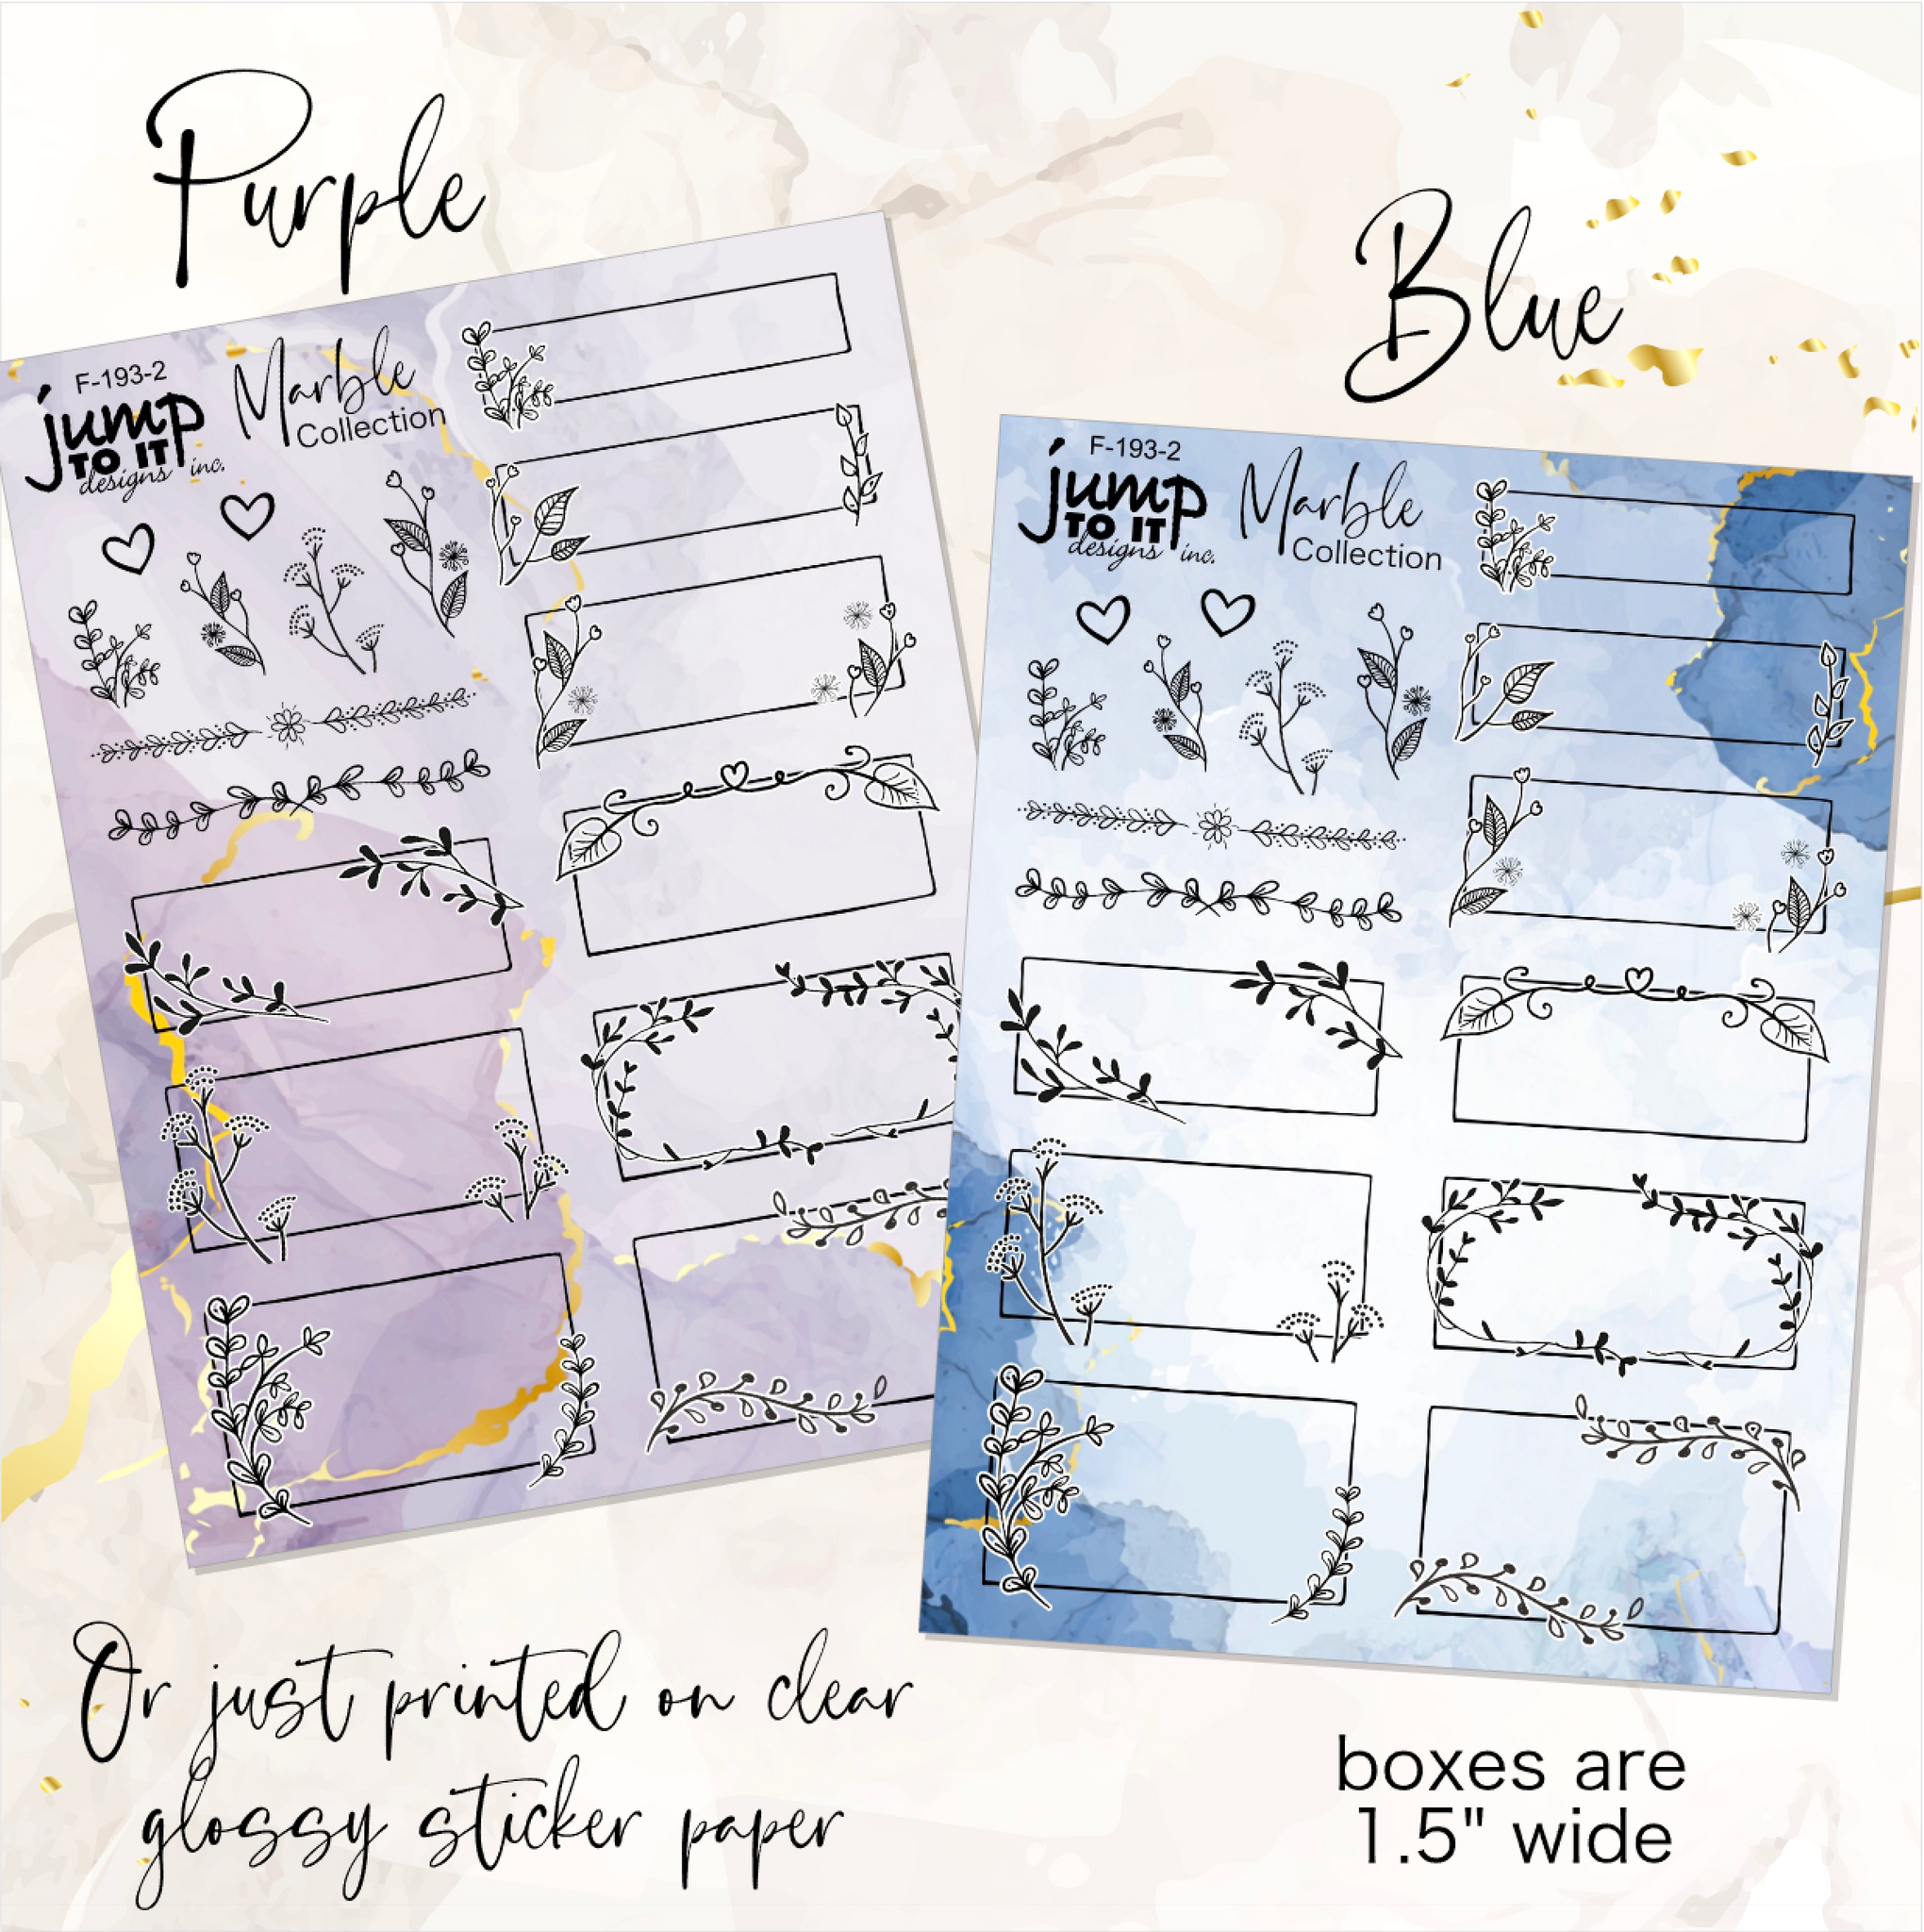 Purple
Blue
F-193-2
jump
TO IT
designs inc.
Marble
Collection
F-193-2
jump
TO IT
designs inc.
Marble
Collection
Or just printed on clear
glossy sticker paper
boxes are
1.5" wide